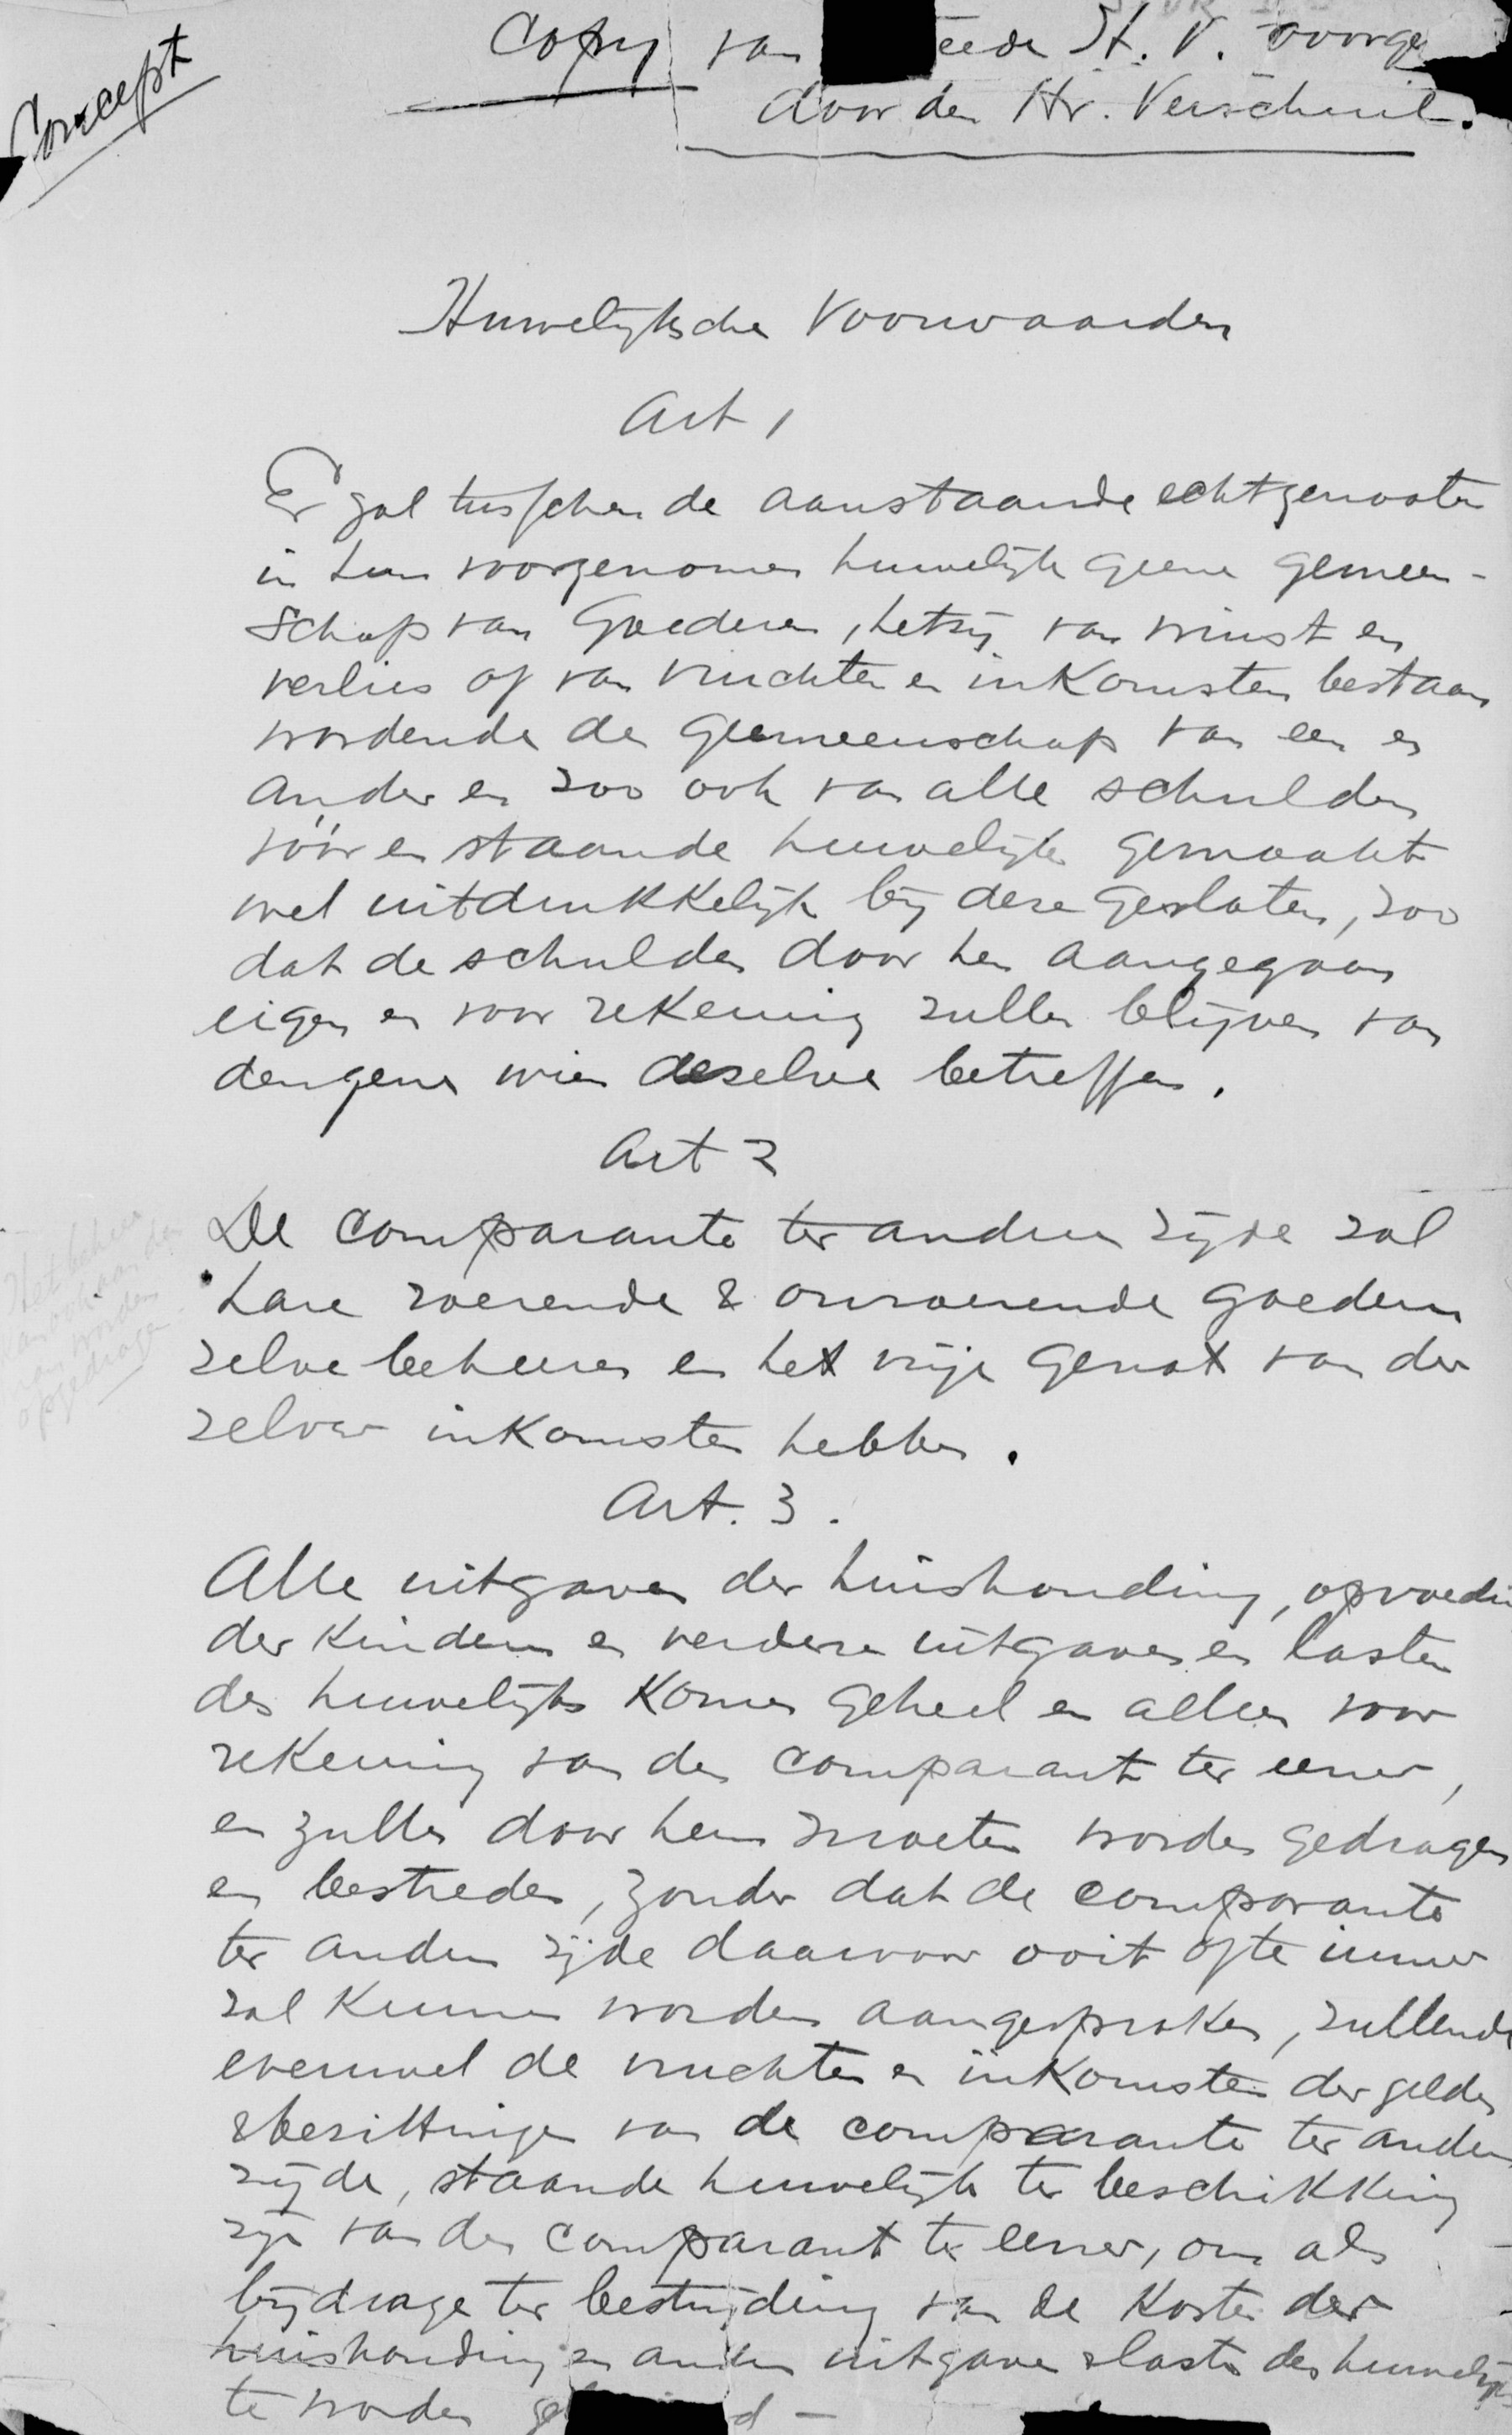 Concept
Copy van eede H. V. voorge
door den Hr. Verschuil.
Huwelijksche Voorwaarden
Art 1
Er zal tusschen de aanstaande echtgenooten
in hun voorgenomen huwelijk geene gemeen-
schap van Goederen, hetzij van winst en
verlies of van vruchten en inkomsten bestaan
wordende de gemeenschap van een en
ander en zoo ook van alle schulden
vóór en staande huwelijk gemaakt
wel uitdrukkelijk bij deze gesloten, zoo
dat de schulden door hen aangegaan
eigen en voor rekening zullen blijven van
dengene wien dezelve betreffen.
Art 2
De comparante ter andere zijde zal
hare roerende & onroerende goederen
zelve beheeren en het vrije genot van der
zelver inkomsten hebben.
Het beheer
kan ook aan den
man worden
opgedragen
Art. 3.
Alle uitgaven der huishouding, opvoedin
der kinderen en verdere uitgaven en lasten
des huwelijks komen geheel en alleen voor
rekening van den comparant ter eener,
en zullen door hem moeten worden gedragen
en bestreden, zonder dat de comparante
ter andere zijde daarvoor ooit ofte immer
zal kunnen worden aangesproken, zullende
evenwel de vruchten en inkomsten der gelden
& bezittingen van de comparante ter andere
zijde, staande huwelijk ter beschikking
zijn van den comparant ter eener, om als
bijdrage ter bestrijding van de kosten der
huishouding en andere uitgaven & lasten des huwelijks
te worden ge d -